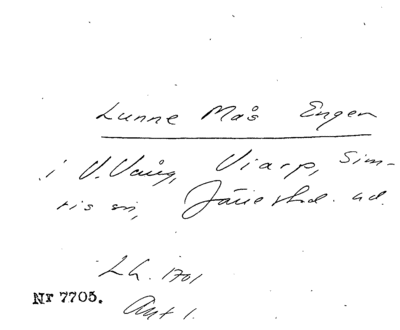 Lunne Mås Enger
i V. Vång, Viarp, Sim-
ris sn, Järrestad. hd.
Lh. 1701
Ant 1.
Nr 7705.